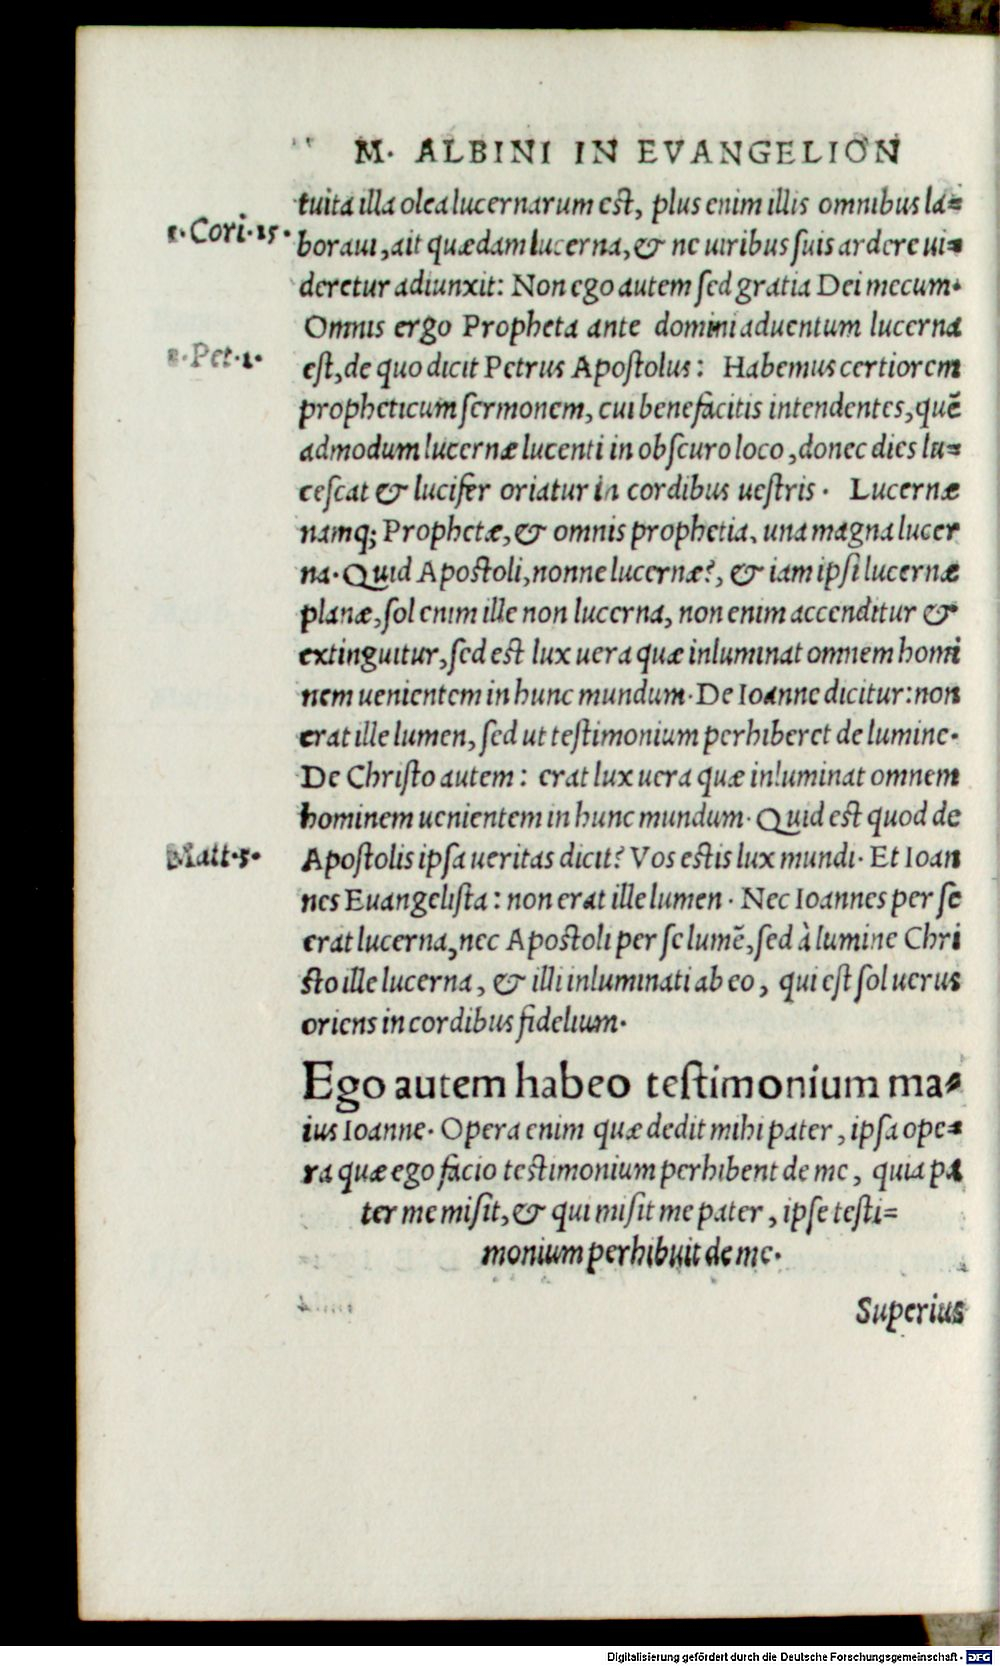 M. ALBINI IN EVANGELION
tuita illa olea lucernarum est, plus enim illis omnibus la=
1. Cori. 15.
boraui, ait quædam lucerna, & ne uiribus suis ardere ui=
deretur adiunxit: Non ego autem sed gratia Dei mecum.
Omnis ergo Propheta ante domini aduentum lucerna
2. Pet. 1.
est, de quo dicit Petrus Apostolus: Habemus certiorem
propheticum sermonem, cui benefacitis intendentes, quẽ
admodum lucernæ lucenti in obscuro loco, donec dies lu=
cescat & lucifer oriatur in cordibus uestris. Lucernæ
namq; Prophetæ, & omnis prophetia, una magna lucer
na. Quid Apostoli, nonne lucernæ?, & iam ipsi lucernæ
planæ, sol enim ille non lucerna, non enim accenditur &
extinguitur, sed est lux uera quæ inluminat omnem homi
nem uenientem in hunc mundum. De Ioanne dicitur: non
erat ille lumen, sed ut testimonium perhiberet de lumine.
De Christo autem: erat lux uera quæ inluminat omnem
hominem uenientem in hunc mundum. Quid est quod de
Matt. 5.
Apostolis ipsa ueritas dicit? Vos estis lux mundi. Et Ioan
nes Euangelista: non erat ille lumen. Nec Ioannes per se
erat lucerna, nec Apostoli per se lumẽ, sed à lumine Chri
sto ille lucerna, & illi inluminati ab eo, qui est sol uerus
oriens in cordibus fidelium.
Ego autem habeo testimonium ma=
ius Ioanne. Opera enim quæ dedit mihi pater, ipsa ope=
ra quæ ego facio testimonium perhibent de me, quia pa
ter me misit, & qui misit me pater, ipse testi=
monium perhibuit de me.
Superius
Digitalisierung gefördert durch die Deutsche Forschungsgemeinschaft - DFG